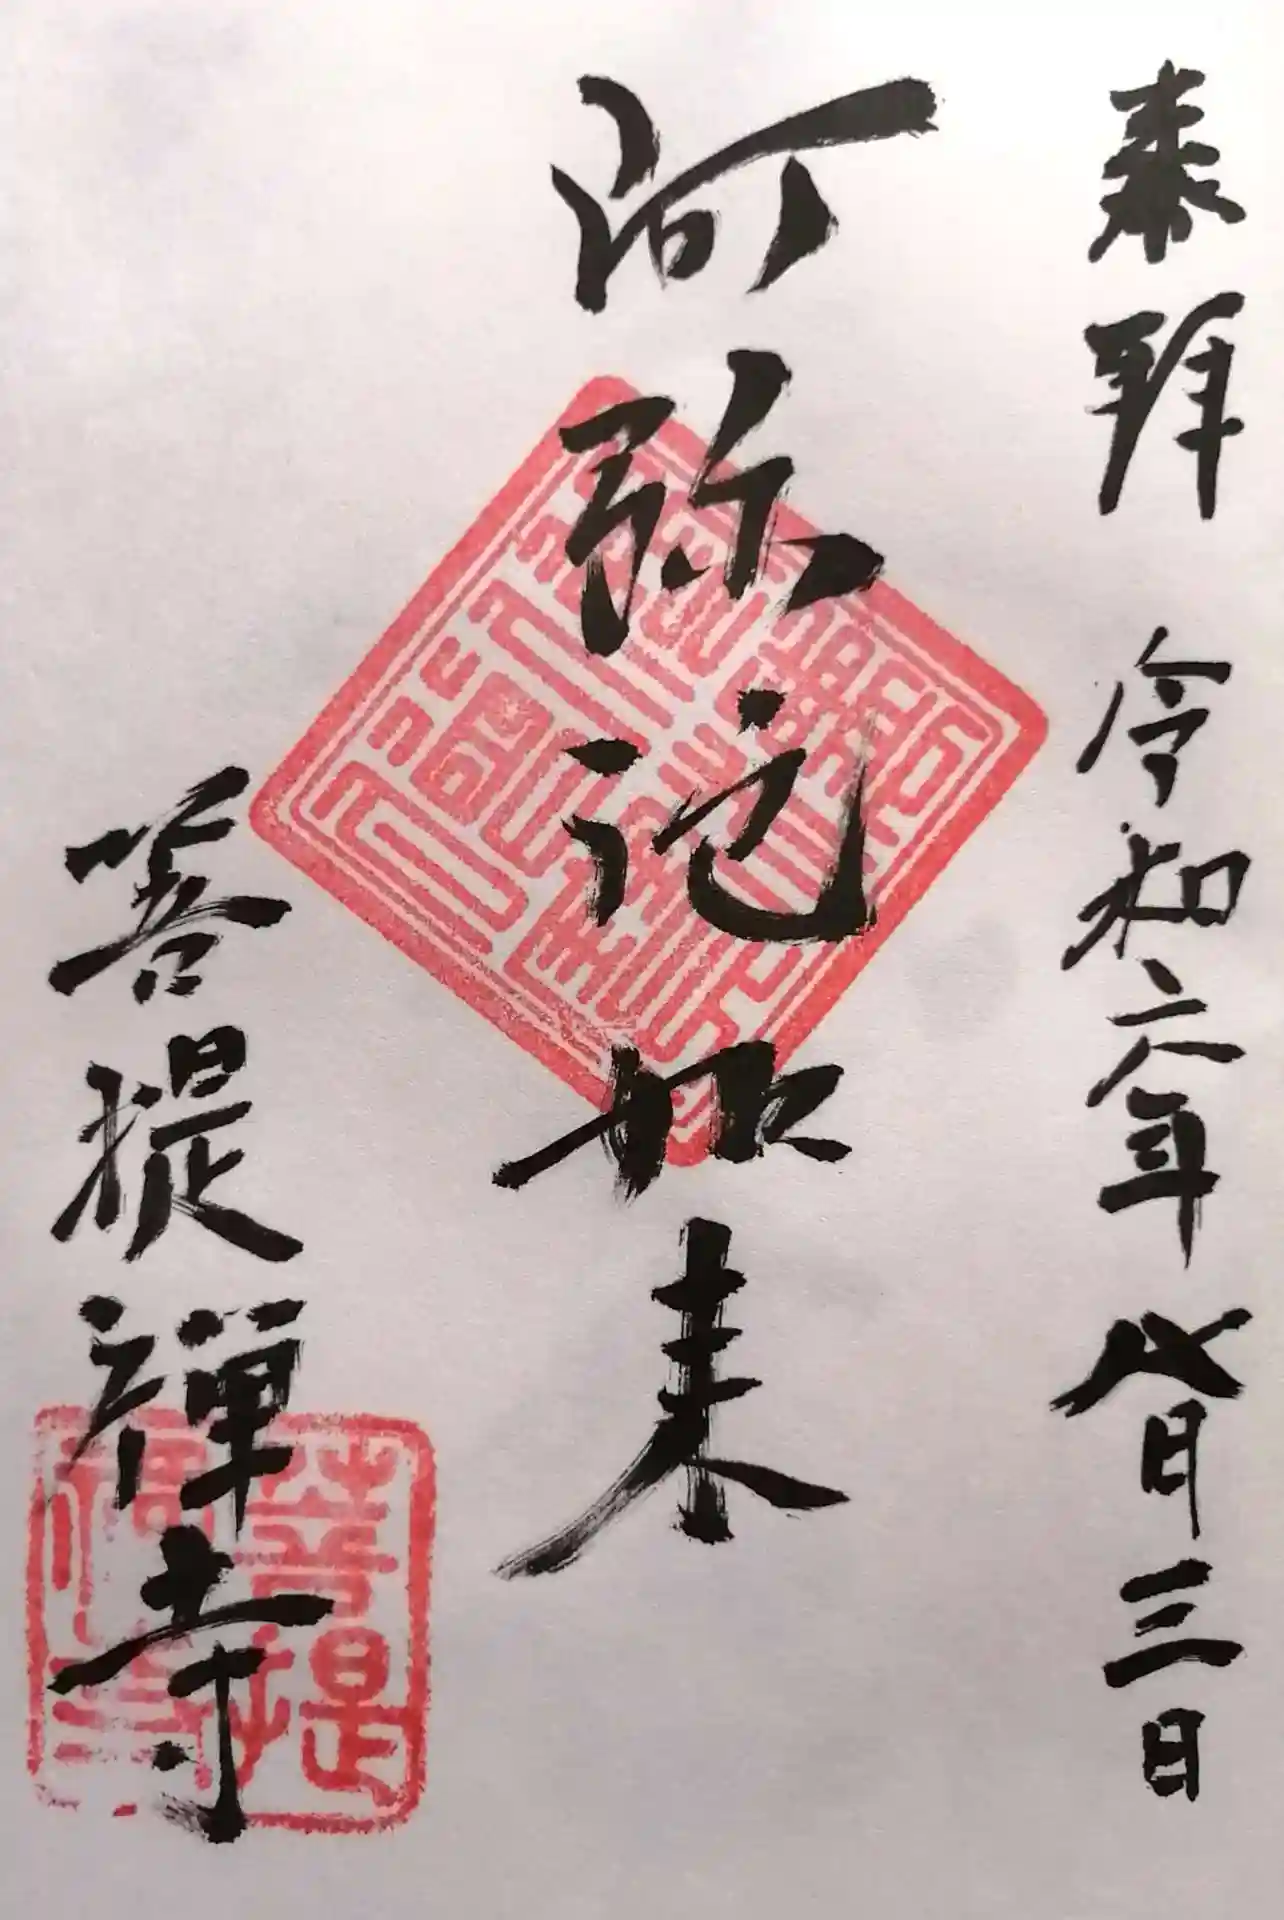 奉拜 令和六年 八月三日
阿弥陀如来
菩提禪寺